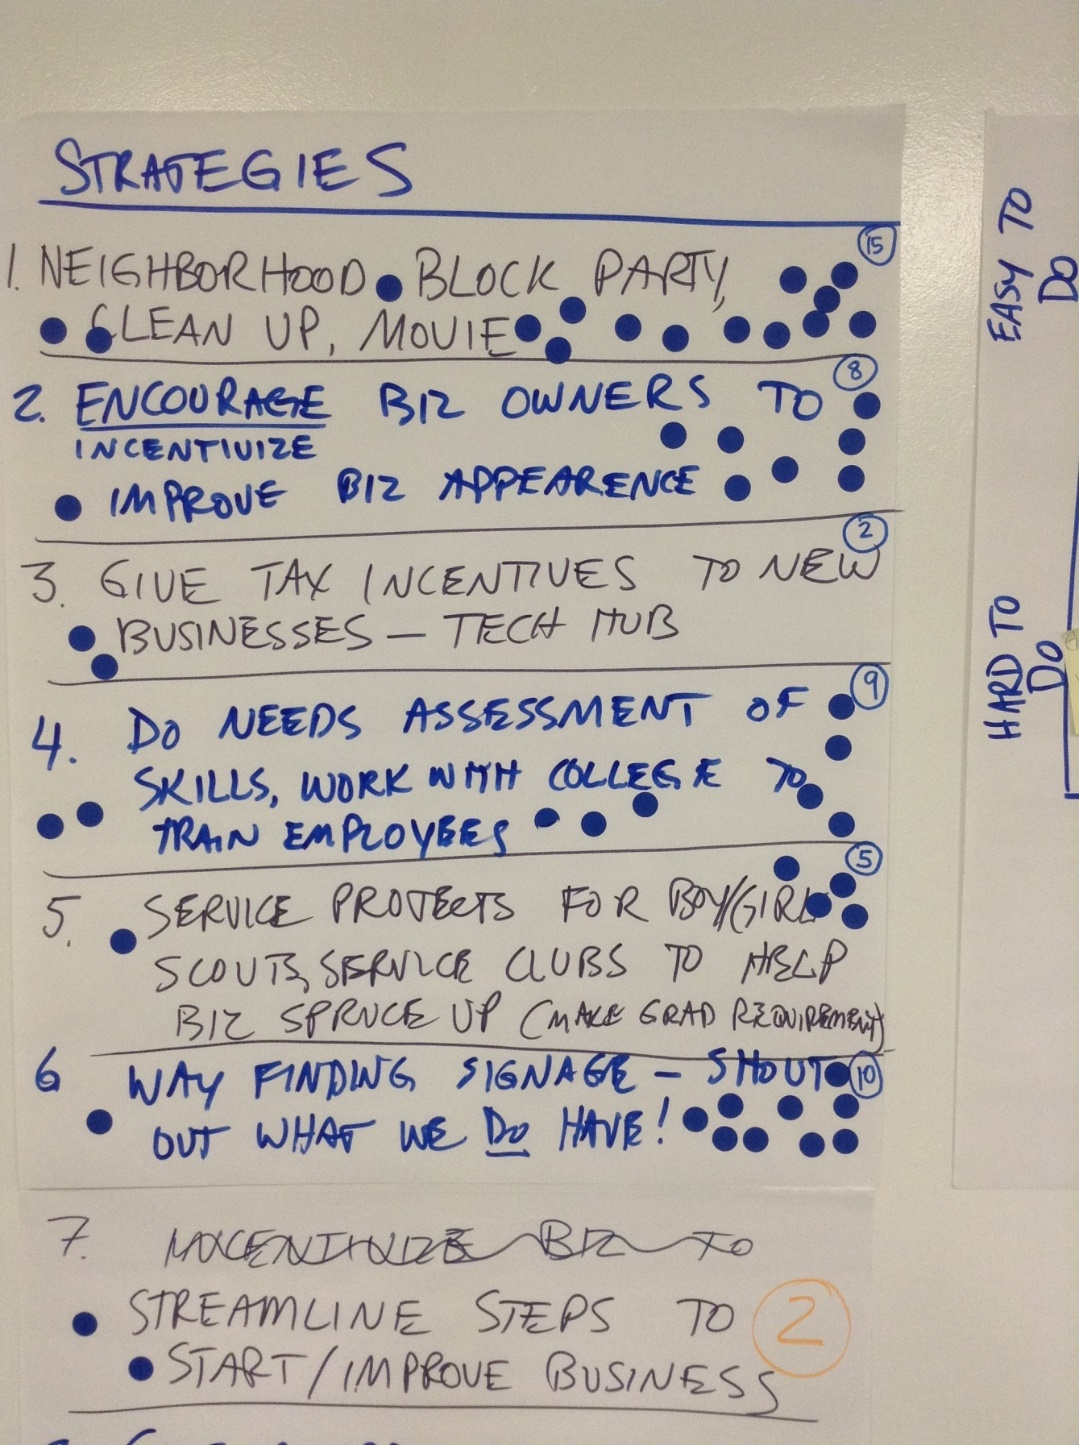 STRATEGIES
15
1. NEIGHBORHOOD BLOCK PARTY,
CLEAN UP, MOVIE
8
2. ENCOURAGE BIZ OWNERS TO
INCENTIVIZE
IMPROVE BIZ APPEARENCE
2
3. GIVE TAX INCENTIVES TO NEW
BUSINESSES – TECH HUB
9
4. DO NEEDS ASSESSMENT OF
SKILLS, WORK WITH COLLEGE TO
TRAIN EMPLOYEES
5
5. SERVICE PROJECTS FOR BOY/GIRL
SCOUTS, SERVICE CLUBS TO HELP
BIZ SPRUCE UP (MAKE GRAD REQUIREMENT)
6 WAY FINDING SIGNAGE – SHOUT 10
OUT WHAT WE DO HAVE!
7. INCENTIVIZE BIZ TO
STREAMLINE STEPS TO 2
START/IMPROVE BUSINESS
EASY TO
DO
HARD TO
DO